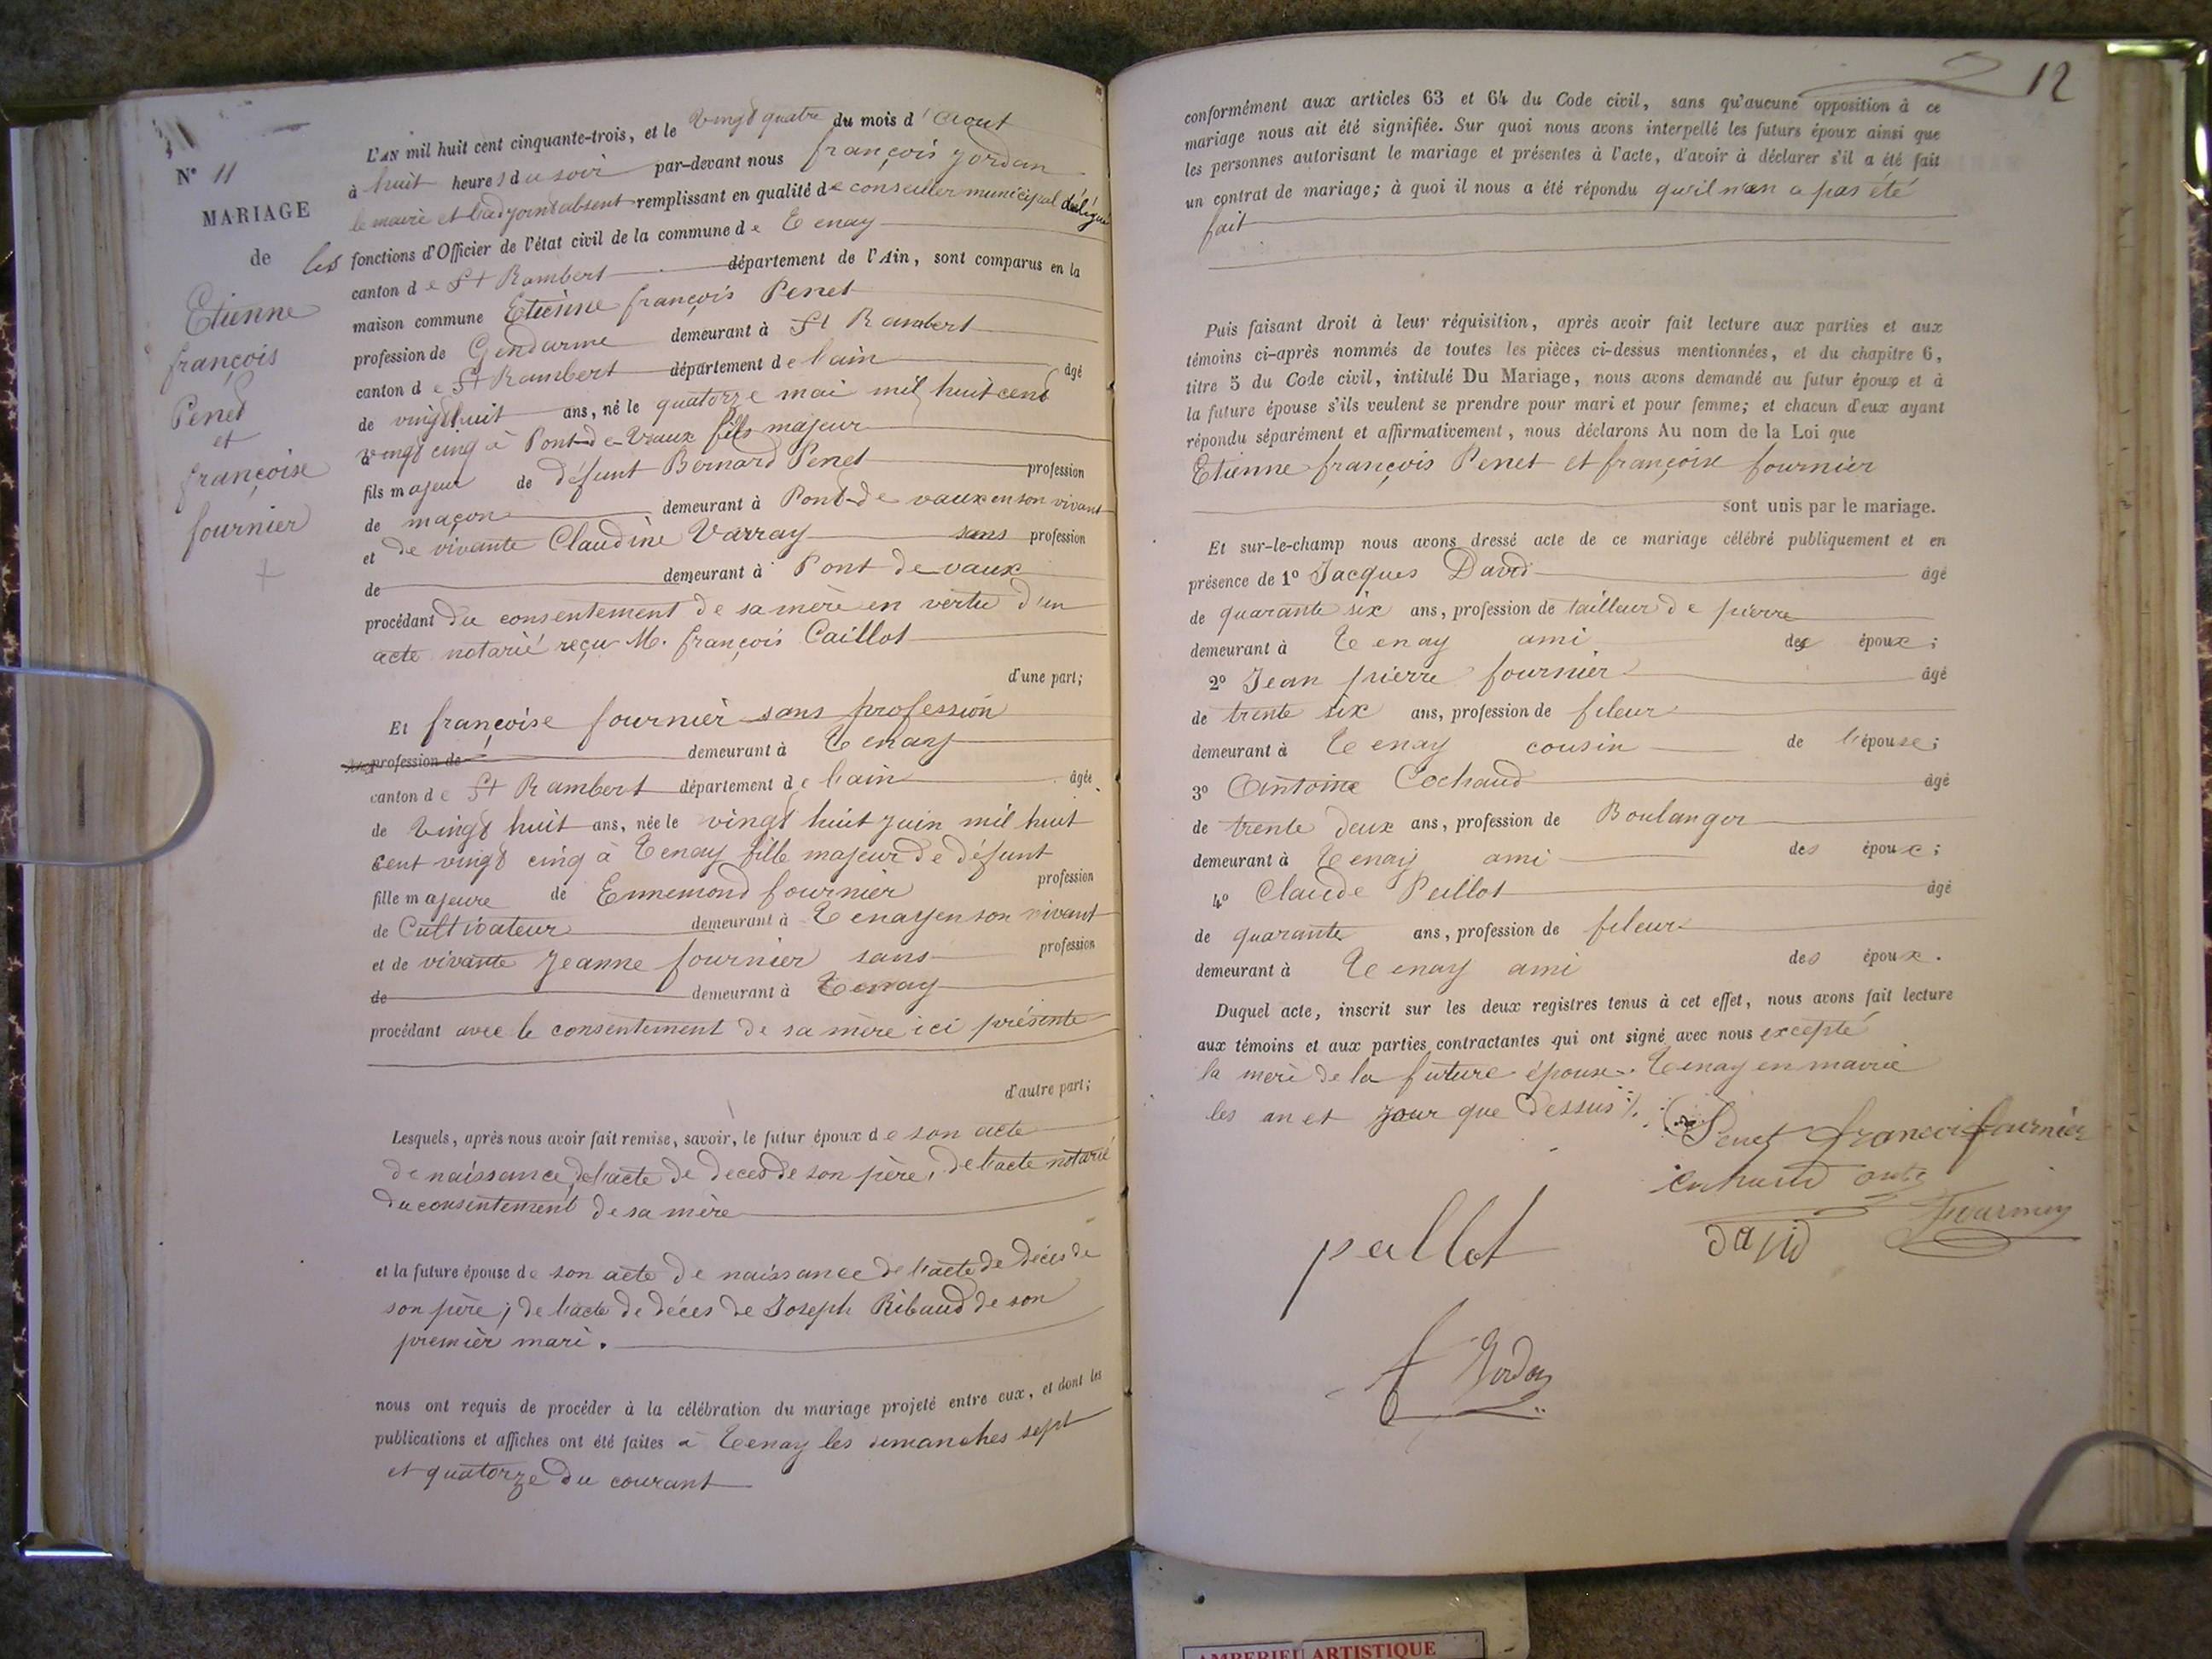 N° 11
MARIAGE
de
Etienne
françois
Penet
et
françoise
fournier
L'AN mil huit cent cinquante-trois, et le vingt quatre du mois d'aout
à huit heures du soir par-devant nous françois Jordan
le maire et l'adjoint absent remplissant en qualité de conseiller municipal délégué
les fonctions d'Officier de l'état civil de la commune de Tenay
canton de St Rambert département de l'Ain, sont comparus en la
maison commune Etienne françois Penet
profession de Gendarme demeurant à St Rambert
canton de St Rambert département de l'ain âgé
de vingt huit ans, né le quatorze mai mil huit cent
vingt cinq à Pont-de-Vaux fils majeur
fils majeur de défunt Bernard Penet profession
de maçon demeurant à Pont-de-vaux en son vivant
et de vivante Claudine Varray sans profession
de demeurant à Pont de vaux
procédant du consentement de sa mère en vertu d'un
acte notarié reçu M. françois Caillot
d'une part;
Et françoise fournier sans profession
profession de demeurant à Tenay
canton de St Rambert département de l'ain âgée
de vingt huit ans, née le vingt huit juin mil huit
cent vingt cinq à Tenay fille majeur de défunt
fille majeure de Ennemond fournier profession
de Cultivateur demeurant à Tenay en son vivant
et de vivante Jeanne fournier sans profession
de demeurant à Tenay
procédant avec le consentement de sa mère ici présente
d'autre part;
Lesquels, après nous avoir fait remise, savoir, le futur époux de son acte
de naissance, de l'acte de deces de son père, de l'acte notarié
du consentement de sa mère
et la future épouse de son acte de naissance de l'acte de décès de
son père; de l'acte de décès de Joseph Ribaud de son
premier mari.
nous ont requis de procéder à la célébration du mariage projeté entre eux, et dont les
publications et affiches ont été faites à Tenay les dimanches sept
et quatorze du courant
12
conformément aux articles 63 et 64 du Code civil, sans qu'aucune opposition à ce
mariage nous ait été signifiée. Sur quoi nous avons interpellé les futurs époux ainsi que
les personnes autorisant le mariage et présentes à l'acte, d'avoir à déclarer s'il a été fait
un contrat de mariage; à quoi il nous a été répondu qu'il n'en a pas été
fait
Puis faisant droit à leur réquisition, après avoir fait lecture aux parties et aux
témoins ci-après nommés de toutes les pièces ci-dessus mentionnées, et du chapitre 6,
titre 5 du Code civil, intitulé Du Mariage, nous avons demandé au futur époux et à
la future épouse s'ils veulent se prendre pour mari et pour femme; et chacun d'eux ayant
répondu séparément et affirmativement, nous déclarons Au nom de la Loi que
Etienne françois Penet et françoise fournier
sont unis par le mariage.
Et sur-le-champ nous avons dressé acte de ce mariage célébré publiquement et en
présence de 1° Jacques David âgé
de quarante six ans, profession de tailleur de pierre
demeurant à Tenay ami des époux;
2° Jean pierre fournier âgé
de trente six ans, profession de fileur
demeurant à Tenay cousin de l'épouse;
3° Antoine Cochaud âgé
de trente deux ans, profession de Boulanger
demeurant à Tenay ami des époux;
4° Claude Pallot âgé
de quarante ans, profession de fileur
demeurant à Tenay ami des époux.
Duquel acte, inscrit sur les deux registres tenus à cet effet, nous avons fait lecture
aux témoins et aux parties contractantes qui ont signé avec nous excepté
la mère de la future épouse. Tenay en mairie
les an et jour que dessus
Penet francoi fournier
Fournier
david
pallot
f Jordan
AMBERIEU ARTISTIQUE